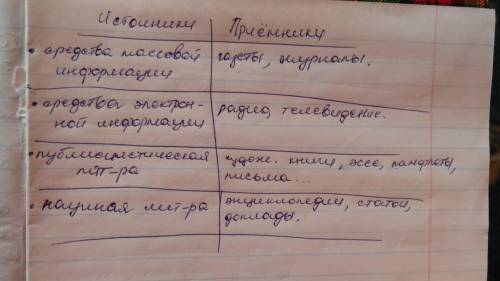 Источники Приёмники
• средства массовой газеты, журналы.
информации
• средства электрон- радио, телевидение.
ной информации
• публицистическая худож. книги, эссе, памфлеты,
лит-ра письма...
• научная лит-ра энциклопедии, статьи,
доклады.